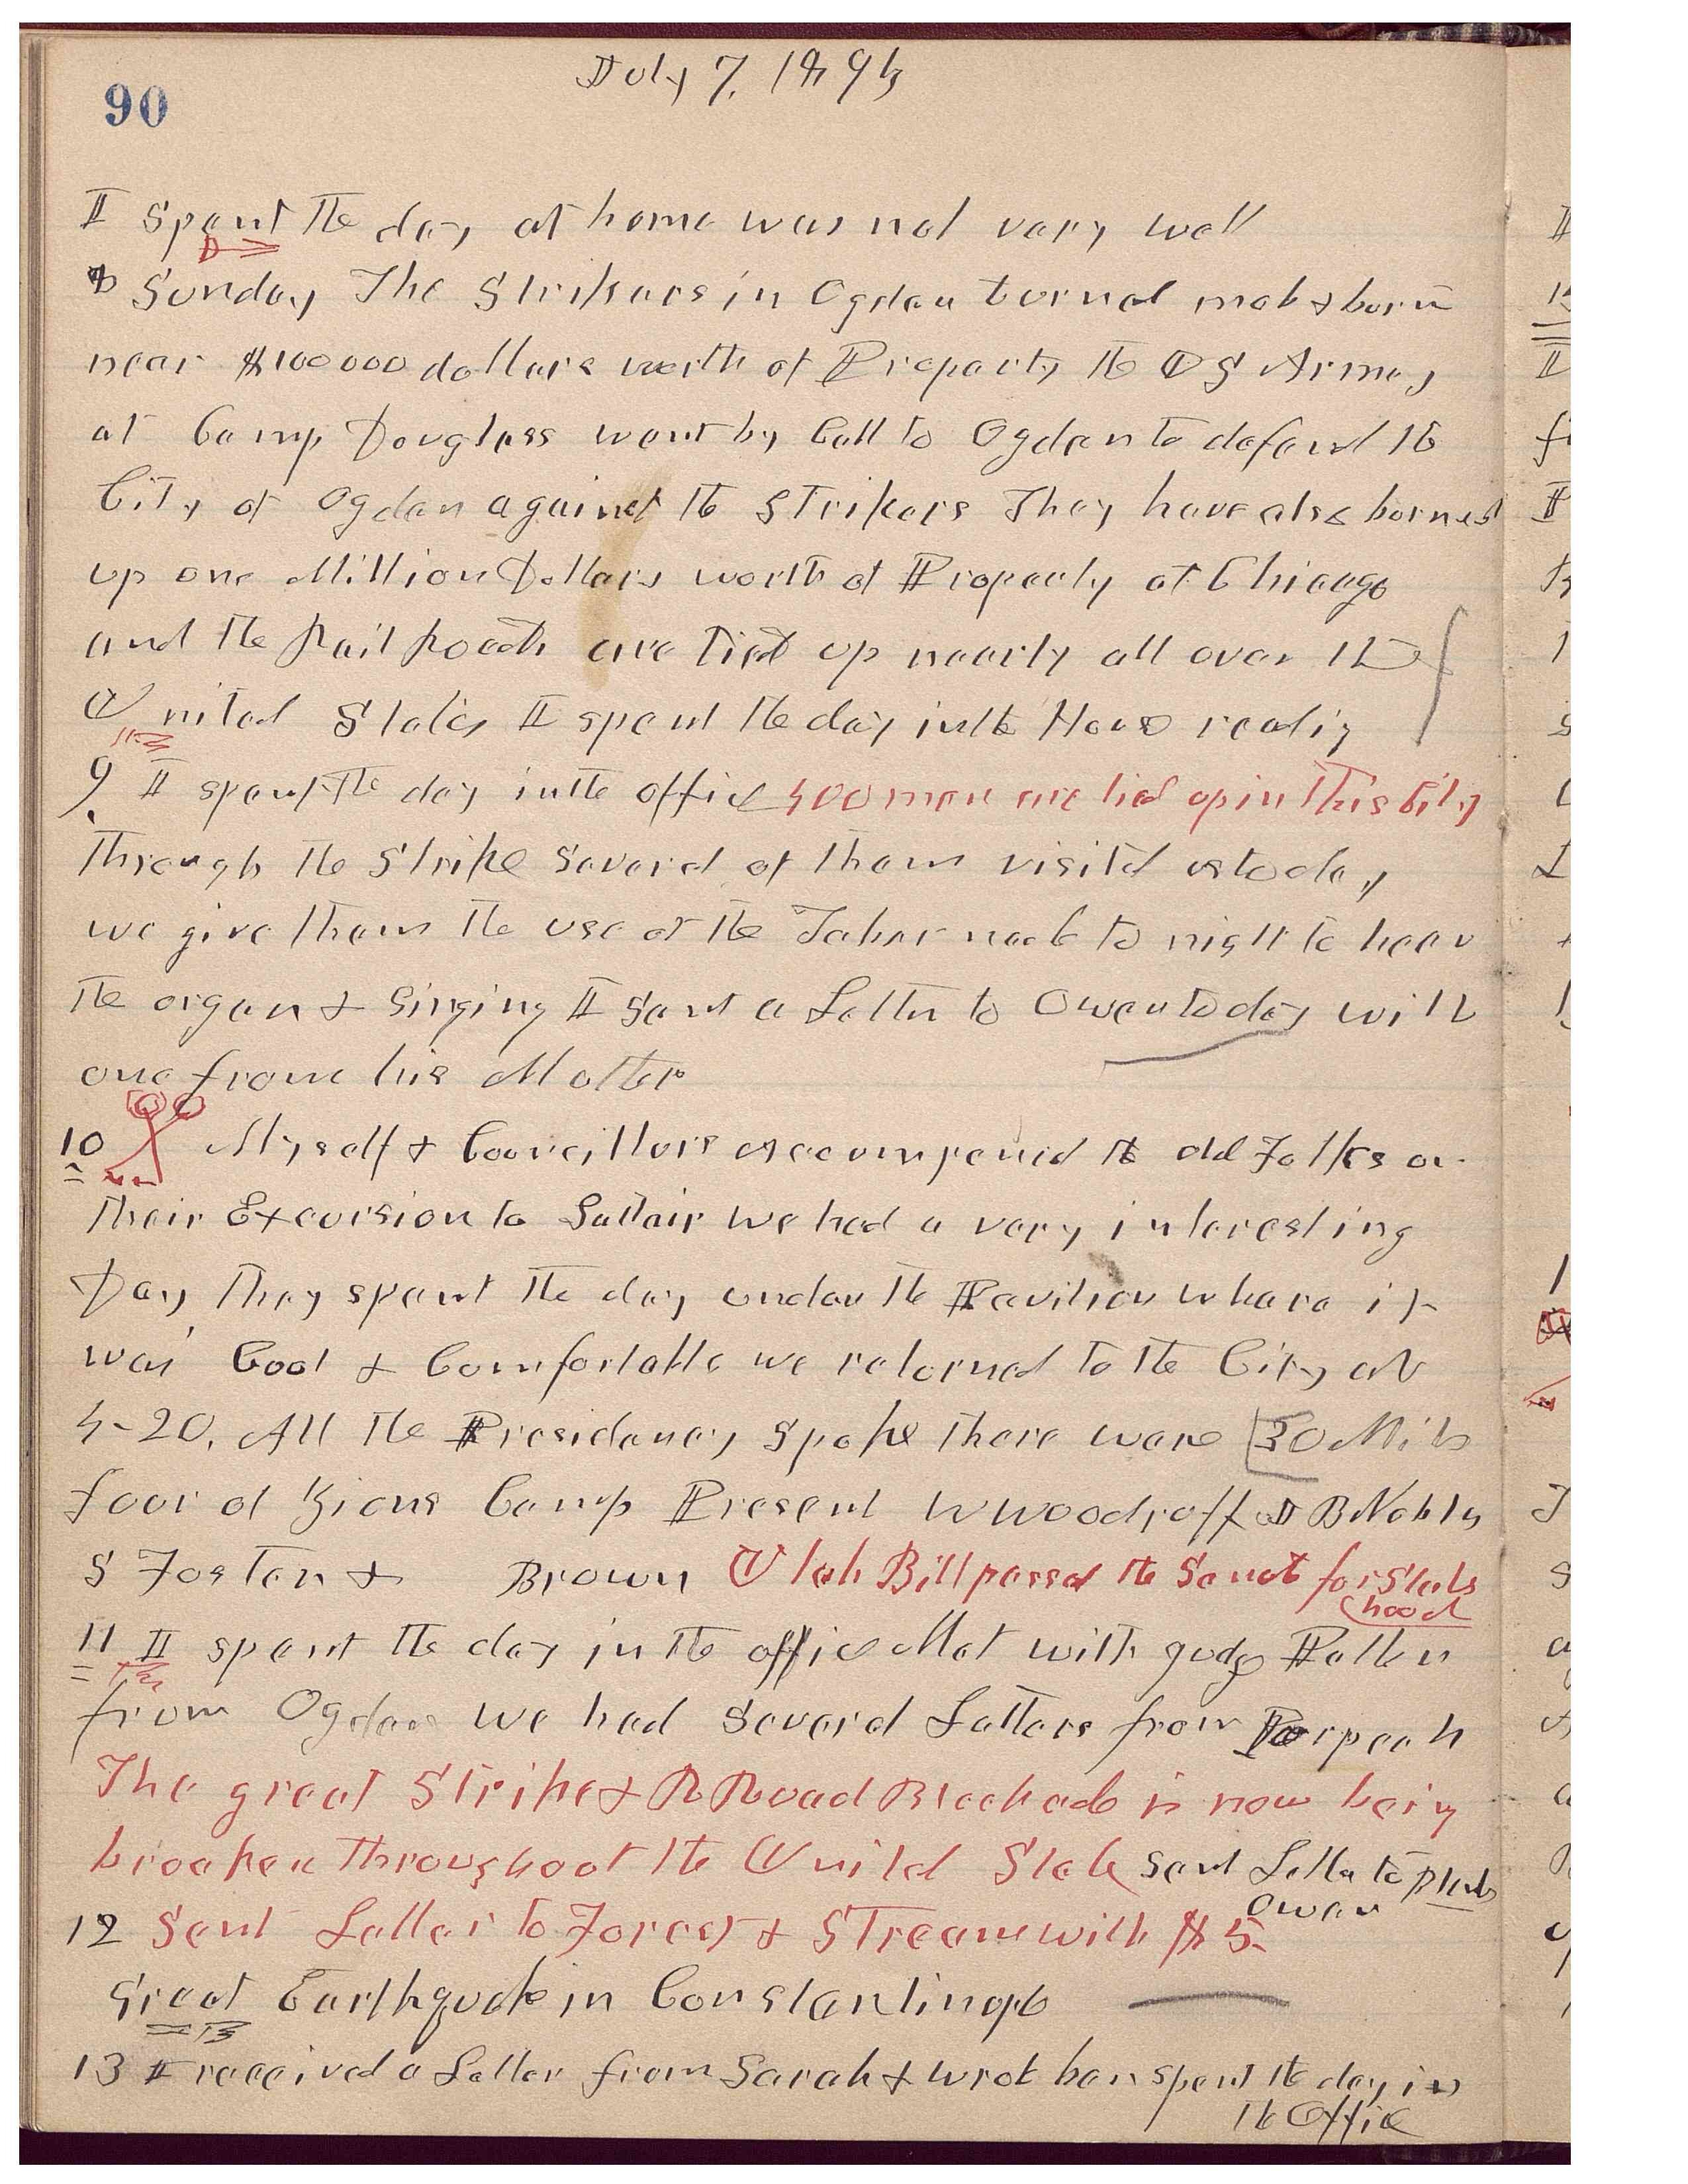 90
July 7, 1894
I spent the day at home was not very well
8 Sunday The Strikers in Ogden turned mob & burn
near $100000 dollars worth of Property the US Army
at Camp Douglass went by Call to Ogden to defend the
City of Ogden against the Strikers They have also burned
up one Million Dollars worth of Property at Chicago
and the Rail Roads are tied up nearly all over the
United States I spent the day in the House reading
9 I spent the day in the office 400 men are tied up in this City
through the Strike several of them visitd us to day
we give them the use of the Tabernacle to night to hear
the organ & Singing I sent a Letter to Owen to day with
one from his Mother
10 Myself & Councillors accompanied the old Folks on
their Excursion to Saltair we had a very interesting
Day They spent the day under the Pavilion where it
was Cool & Comfortable we returned to the City at
4-20. All the Presidency Spoke there were 30
four of Zions Camp Present W Woodruff J B Noble
S Foster & Brown Utah Bill passed the Senat for State
hood
11 I spent the day in the office Met with Judge Patten
from Ogden we had several Letters from
The great Strike & R Road Blockade is now being
broaken throughout the United State sent Letter to
Owen
12 Sent Letter to Forest & Stream with $5-
Great Earthquake in Constantinople
13 I received a Letter from Sarah & wrote her spent the day in
the Office